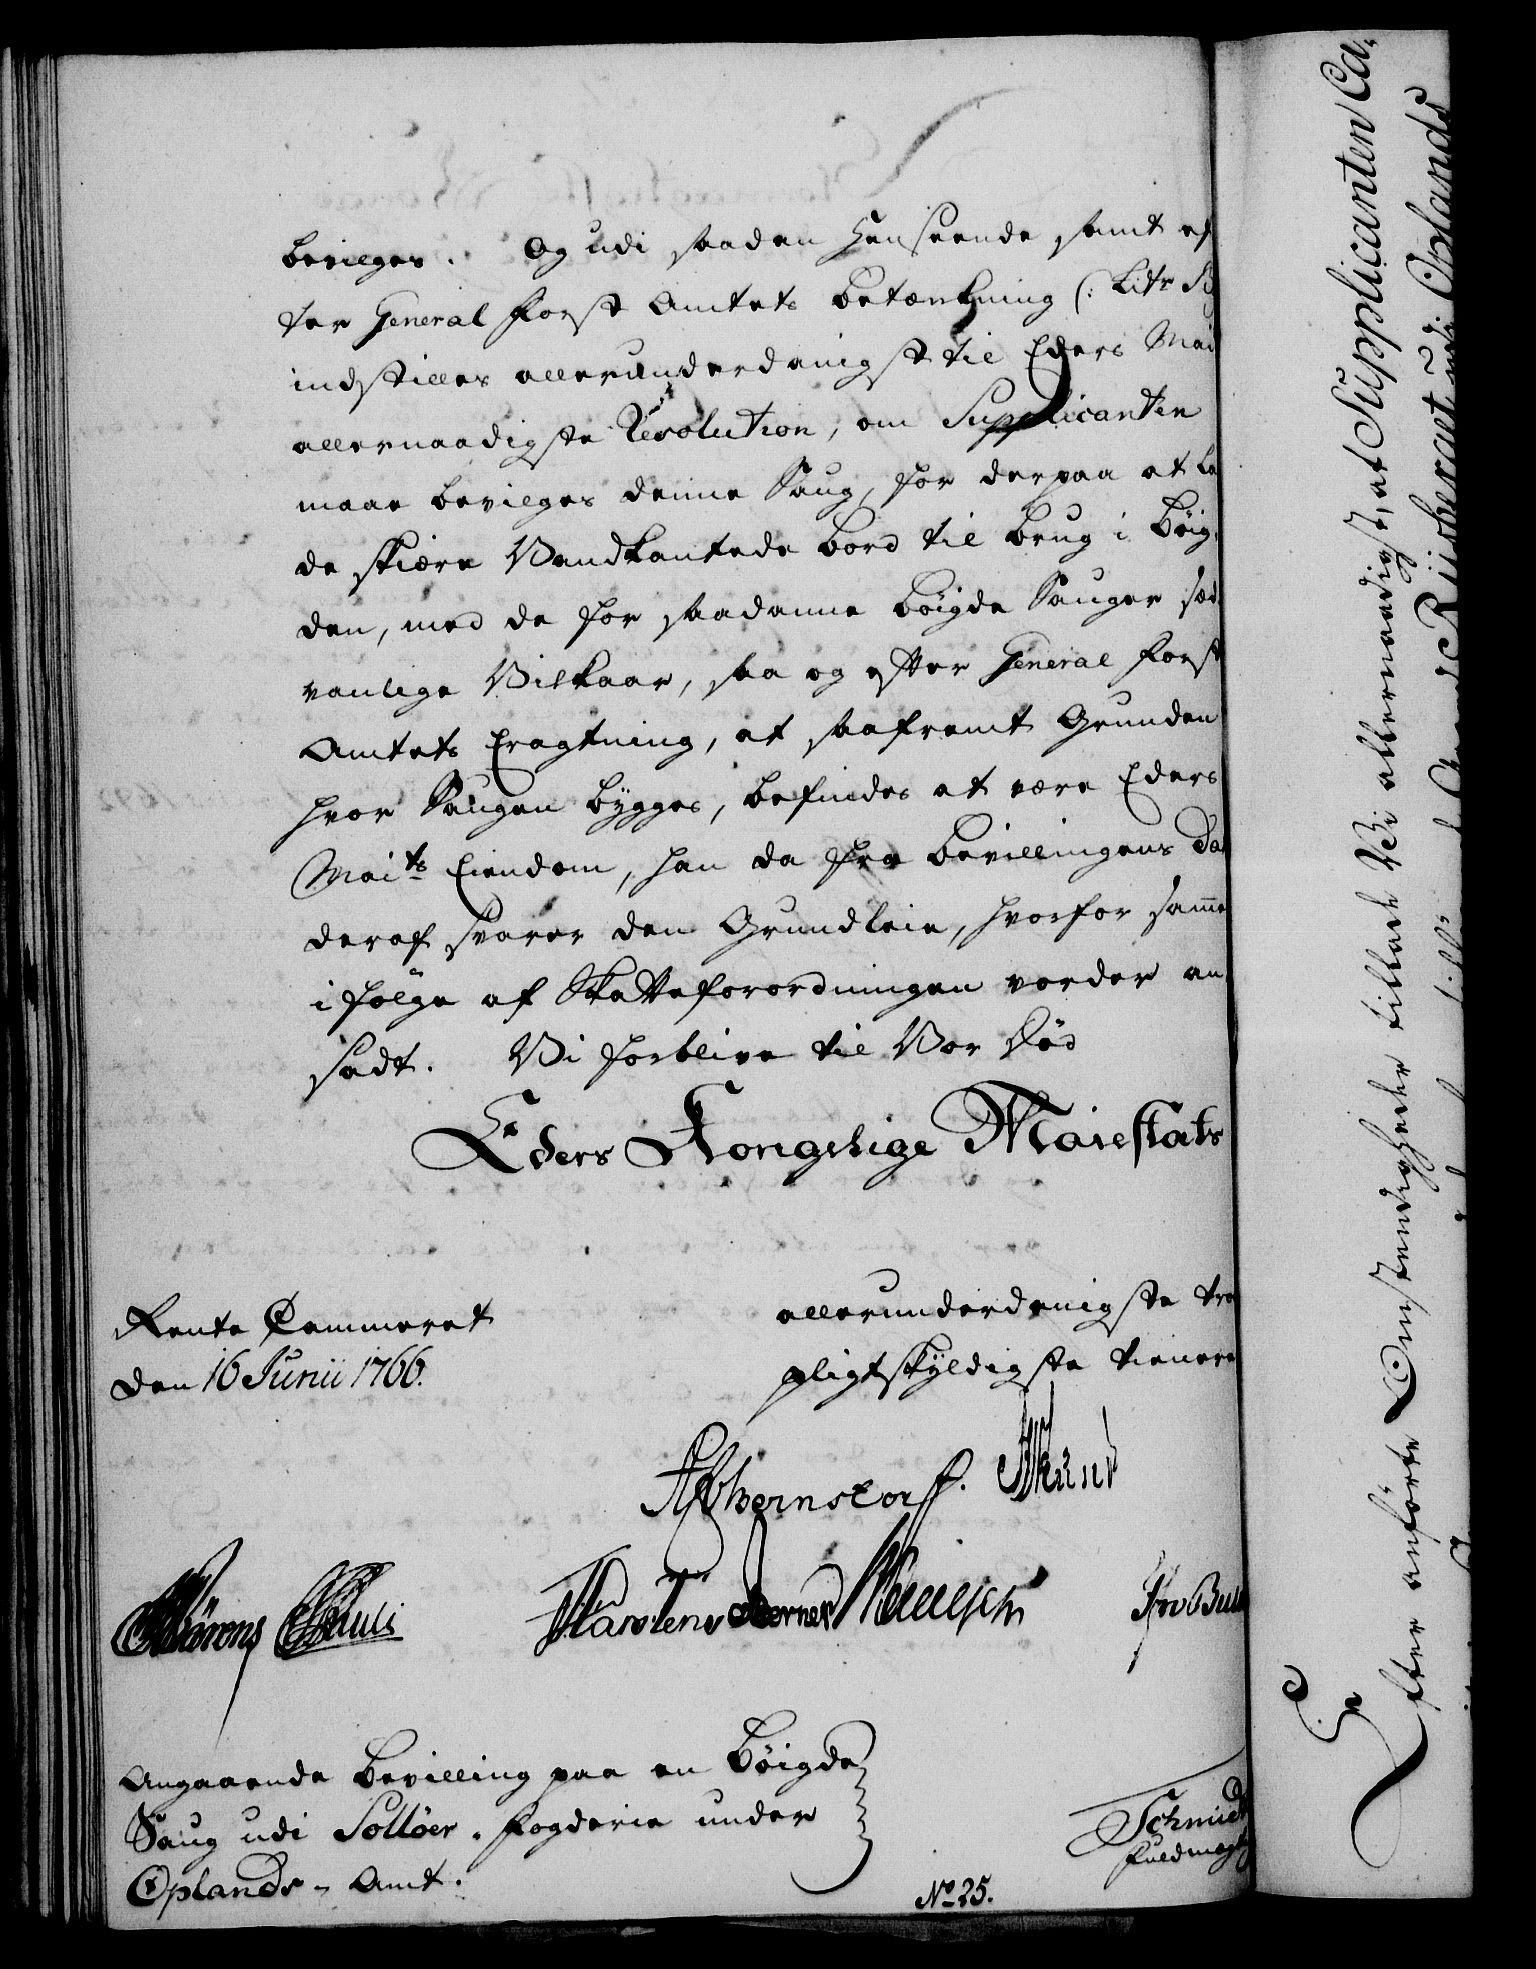 bevilges. Og udi saadan Henseende samt ef
ter General Forst Amtets Betænkning (: Litr B
indstilles allerunderdanigst til Eders Mai
allernaadigste Resolution, om Supplicanten
maae bevilges denne Saug, for derpaa at la
de skiære Vandkantede Bord til Brug i Böig,
den, med de for saadanne Böigde Sauger sæd
vanlige Vilkaar, saa og efter General Forst
Amtets Eragtning, at saafremt Grunden
hvor Saugen bÿgges, befindes at være Eders
Maits Eiendom, han da fra Bevillingens Da
deraf svarer den Grundleie, hvorfor samme
i fölge af Skatteforordningen vorder an,
sadt. Vi forblive til Vor Död
Eders Kongelige Maiestats
allerunderdanigste tro
pligtskÿldigste tienere
Rente Cammeret
den 16 Junii 1766.
Bernstorff.
Angaaende Bevilling paa en Böigde
Saug udi Sollöer, Fogderie under
Oplands-Amt.
Schmidt
Fuldmægt
No 25.
Efter anförte Omstændigheder tillade Vi allernaadigst, at Supplicanten Ca,
Oplands